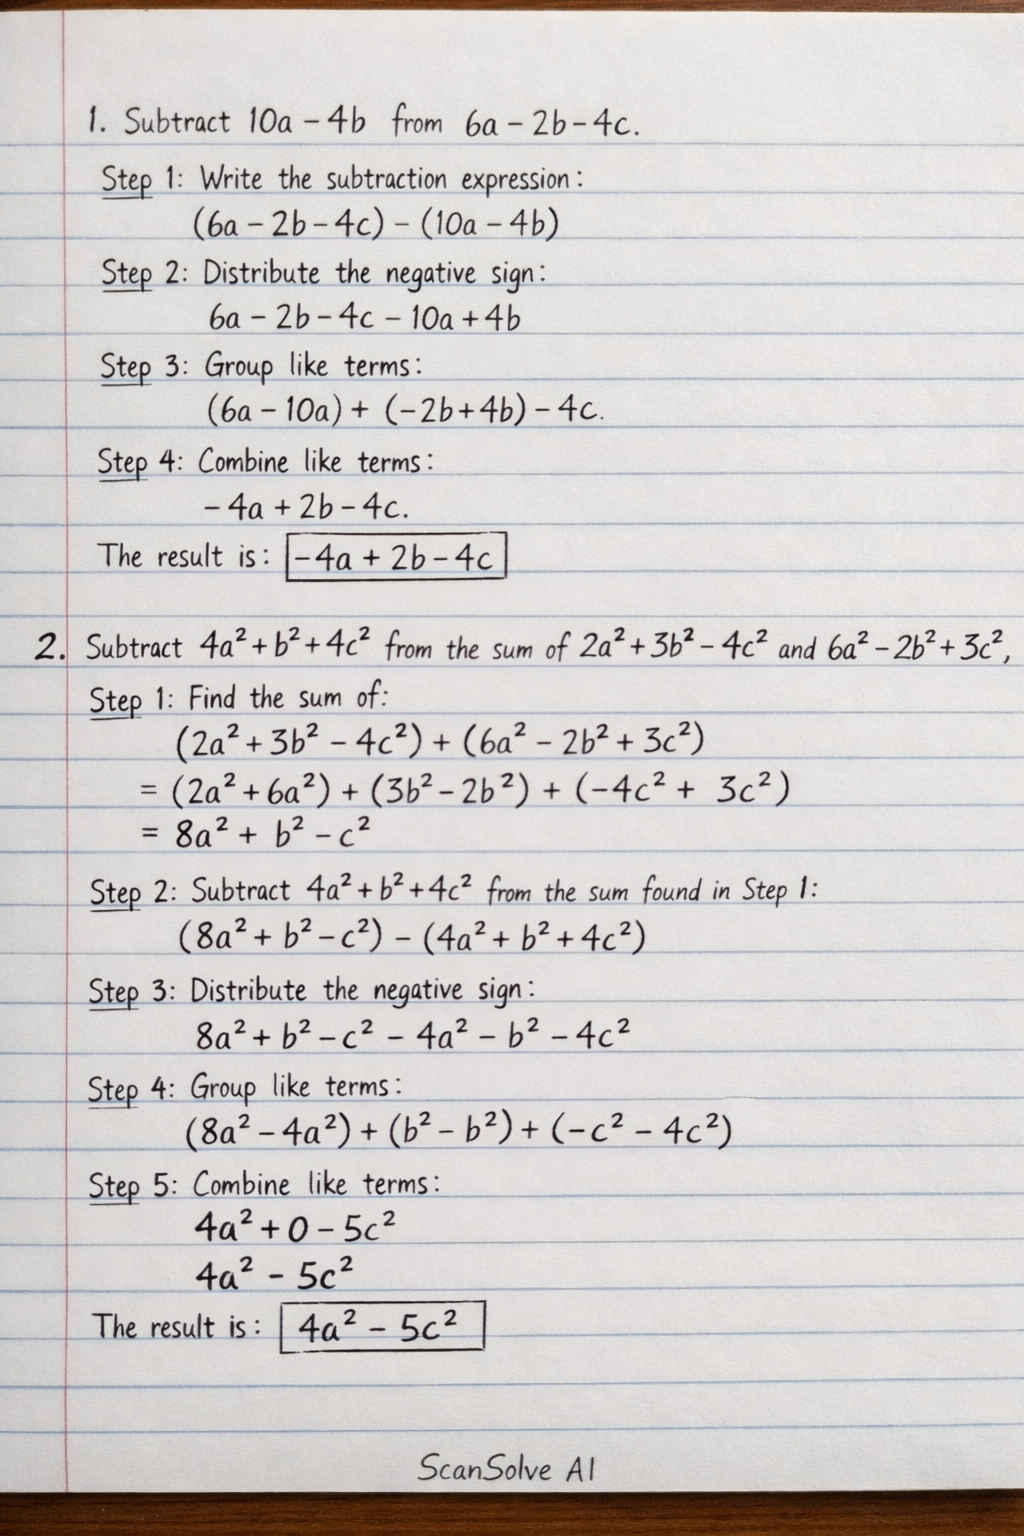 1. Subtract 10a - 4b from 6a - 2b - 4c.
Step 1: Write the subtraction expression:
(6a - 2b - 4c) - (10a - 4b)
Step 2: Distribute the negative sign:
6a - 2b - 4c - 10a + 4b
Step 3: Group like terms:
(6a - 10a) + (-2b + 4b) - 4c.
Step 4: Combine like terms:
- 4a + 2b - 4c.
The result is: -4a + 2b - 4c
2. Subtract 4a² + b² + 4c² from the sum of 2a² + 3b² - 4c² and 6a² - 2b² + 3c²,
Step 1: Find the sum of:
(2a² + 3b² - 4c²) + (6a² - 2b² + 3c²)
= (2a² + 6a²) + (3b² - 2b²) + (-4c² + 3c²)
= 8a² + b² - c²
Step 2: Subtract 4a² + b² + 4c² from the sum found in Step 1:
(8a² + b² - c²) - (4a² + b² + 4c²)
Step 3: Distribute the negative sign:
8a² + b² - c² - 4a² - b² - 4c²
Step 4: Group like terms:
(8a² - 4a²) + (b² - b²) + (-c² - 4c²)
Step 5: Combine like terms:
4a² + 0 - 5c²
4a² - 5c²
The result is: 4a² - 5c²
ScanSolve AI